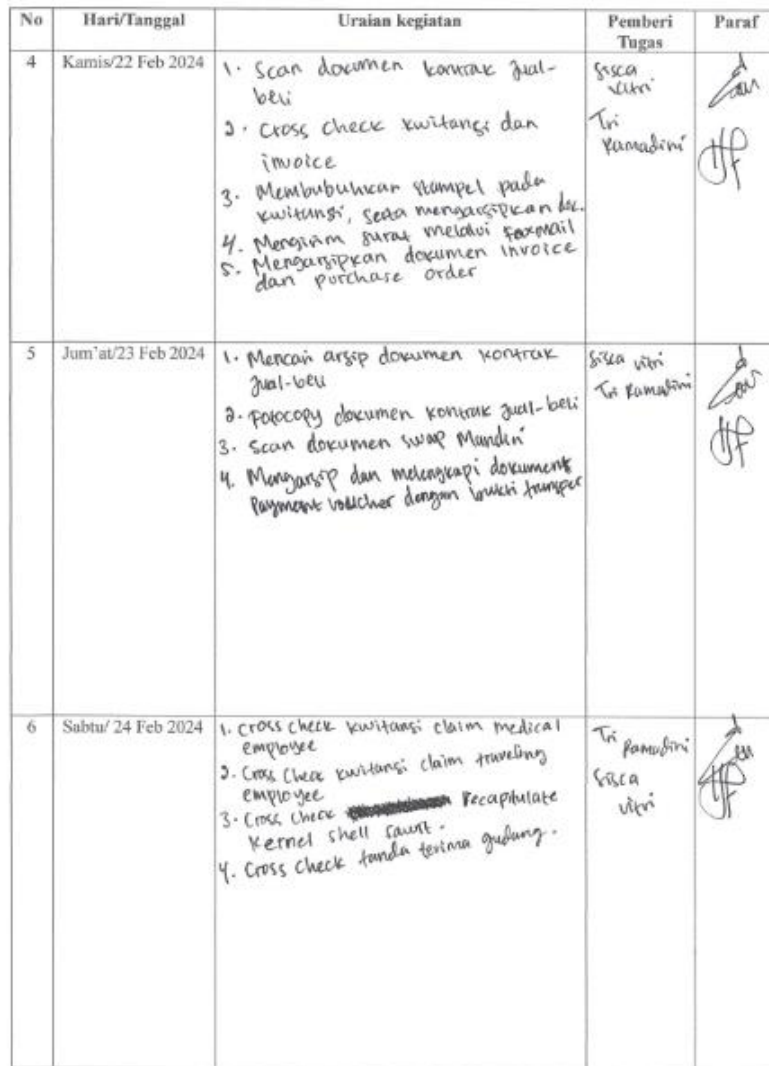 No Hari/Tanggal Uraian kegiatan Pemberi Tugas Paraf
4 Kamis/22 Feb 2024
1. Scan dokumen kontrak Jual-
beli
2. Cross check kwitansi dan
invoice
3. Membubuhkan stampel pada
kwitansi, serta mengarsipkan doc.
4. Mengirim surat melalui faxmail
5. Mengarsipkan dokumen invoice
dan purchase order
Sisca
Vitri
Tri
Ramadini
5 Jum'at/23 Feb 2024
1. Mencari arsip dokumen kontrak
Jual-beli
2. Fotocopy dokumen kontrak Jual-beli
3. Scan dokumen swap Mandiri
4. Mengarsip dan melengkapi dokument
Payment voucher dengan bukti transper
Sisca Vitri
Tri Ramadini
6 Sabtu/ 24 Feb 2024
1. Cross check kwitansi claim medical
employee
2. Cross Check kwitansi claim traveling
employee
3. Cross Check Recapitulate
Kernel shell sawit.
4. Cross Check tanda terima gudang.
Tri Ramadini
Sisca
Vitri